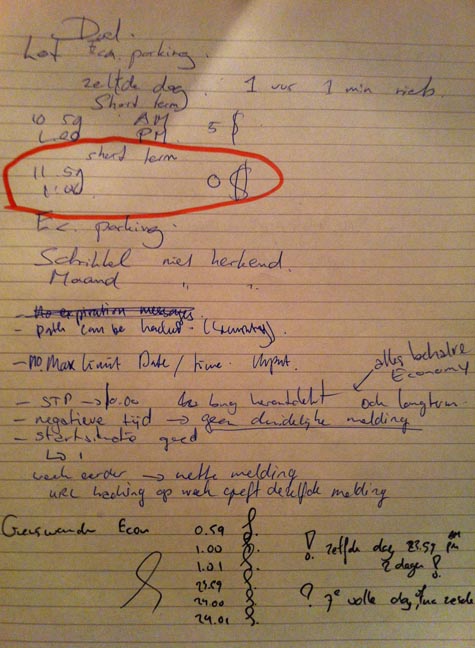 Doel.
Lot Ec. parking.
zelfde dag. 1 uur 1 min niets
Short term
10 59 AM 5 $
PM
short term
11 59 0 $
1:00
Ec. parking.
Schrikkel niet herkend.
Maand " " .
- No expiration messages
- path can be hacked. (security).
- no Max limit Date / time input.
alles behalve
Economy
- STP → 10.00 ook longterm
- negatieve tijd → geen duidelijke melding
- startsituatie goed
↳ 1
week eerder → nette melding
URL hacking op week geeft dezelfde melding
Econ 0.59
1.00
1.01
23.59
24.00
24.01
! zelfde dag 23.59 PM
2 dagen !
? 7e volle dag